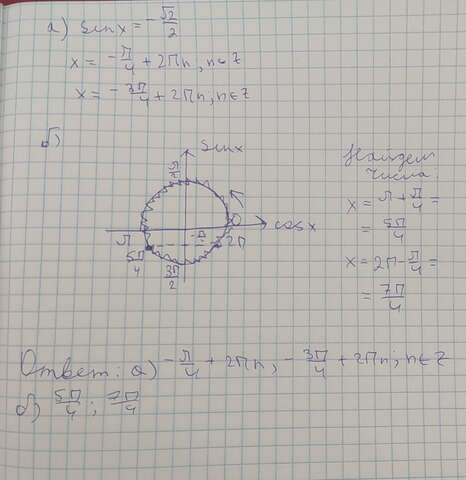 а) sinx = -√2/2
x = -π/4 + 2πn, n∈Z
x = -3π/4 + 2πn, n∈Z
б)
sinx
π/2
0
cosx
π
2π
-π/4
5π/4
3π/2
Найдем
числа:
x = π + π/4 =
= 5π/4
x = 2π - π/4 =
= 7π/4
Ответ: а) -π/4 + 2πn, -3π/4 + 2πn; n∈Z
б) 5π/4; 7π/4